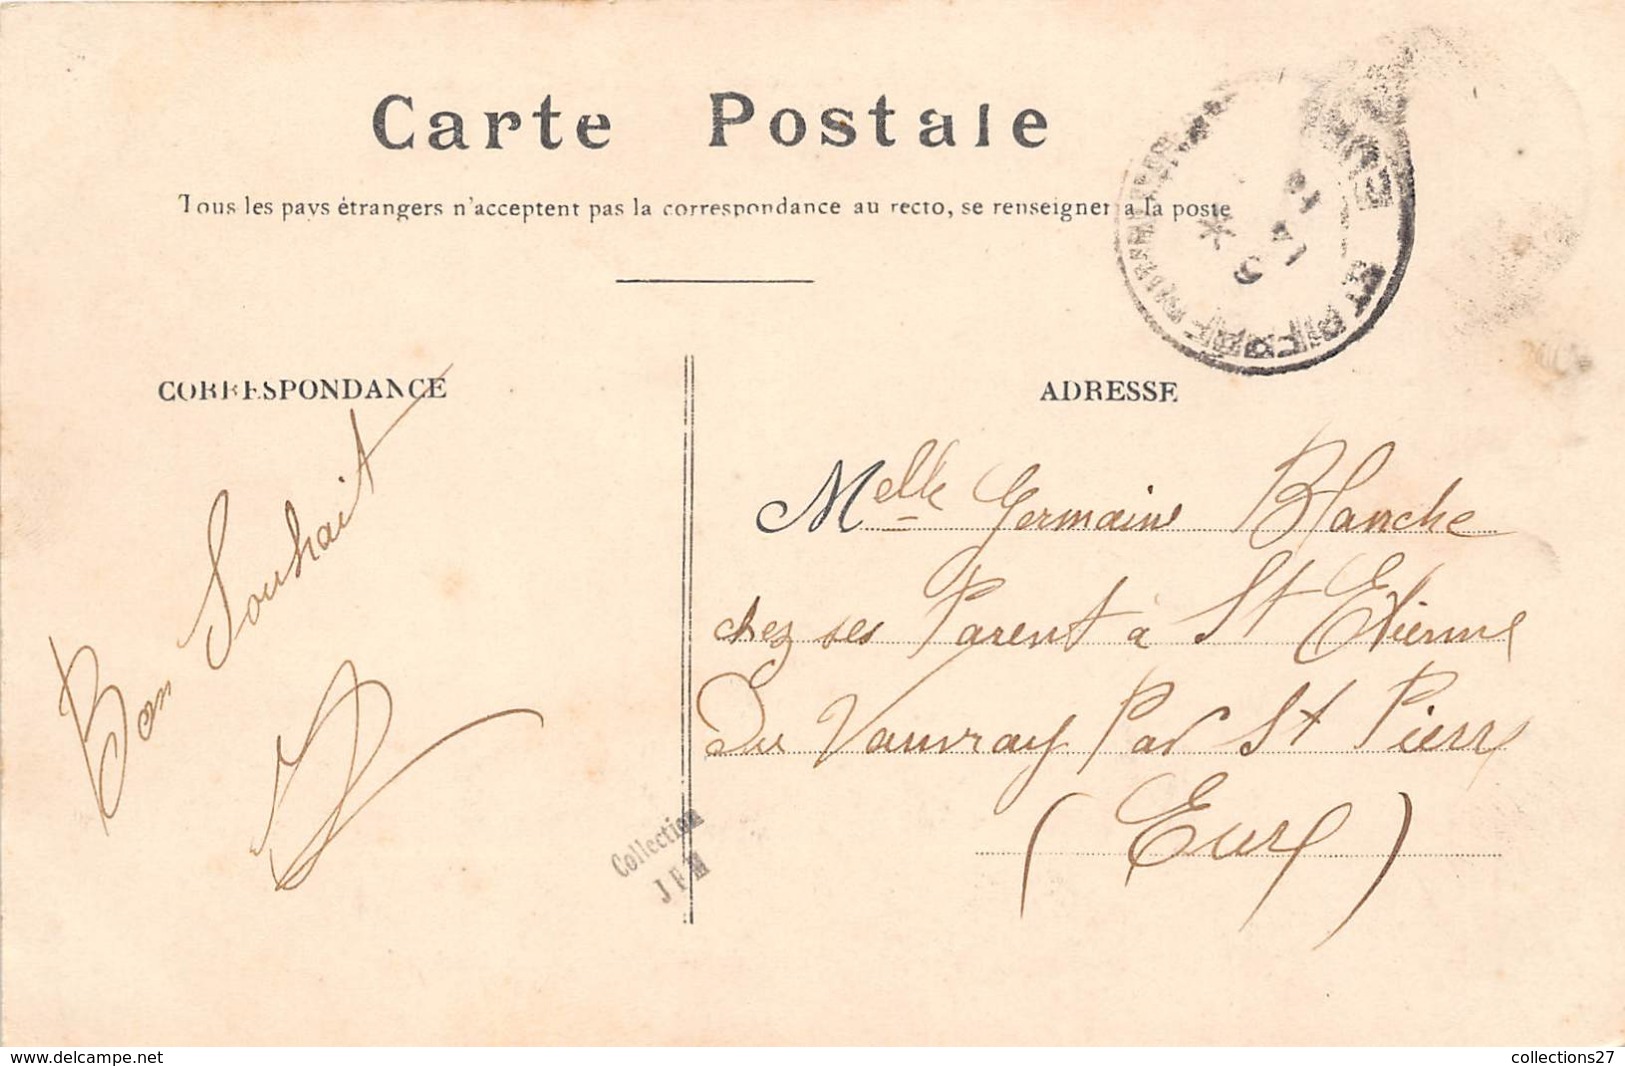 Carte Postale
Tous les pays étrangers n'acceptent pas la correspondance au recto, se renseigner a la poste
CORRESPONDANCE
ADRESSE
Bon Souhait
Melle Germaine Blanche
chez ses Parent à St Etienne
Du Vauvray Par St Pierre
(Eure)
Collection
JFM
www.delcampe.net
collections27